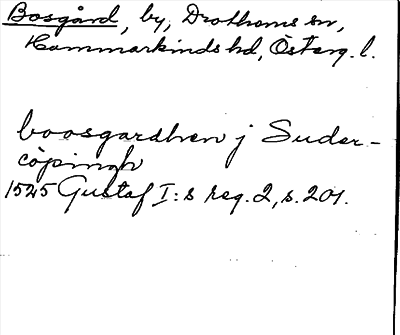 Bosgård, by, Drothems sn,
Hammarkinds hd, Österg. l.
boosgardhen j Suder-
cöpingh
1525 Gustaf I:s reg. 2, s. 201.